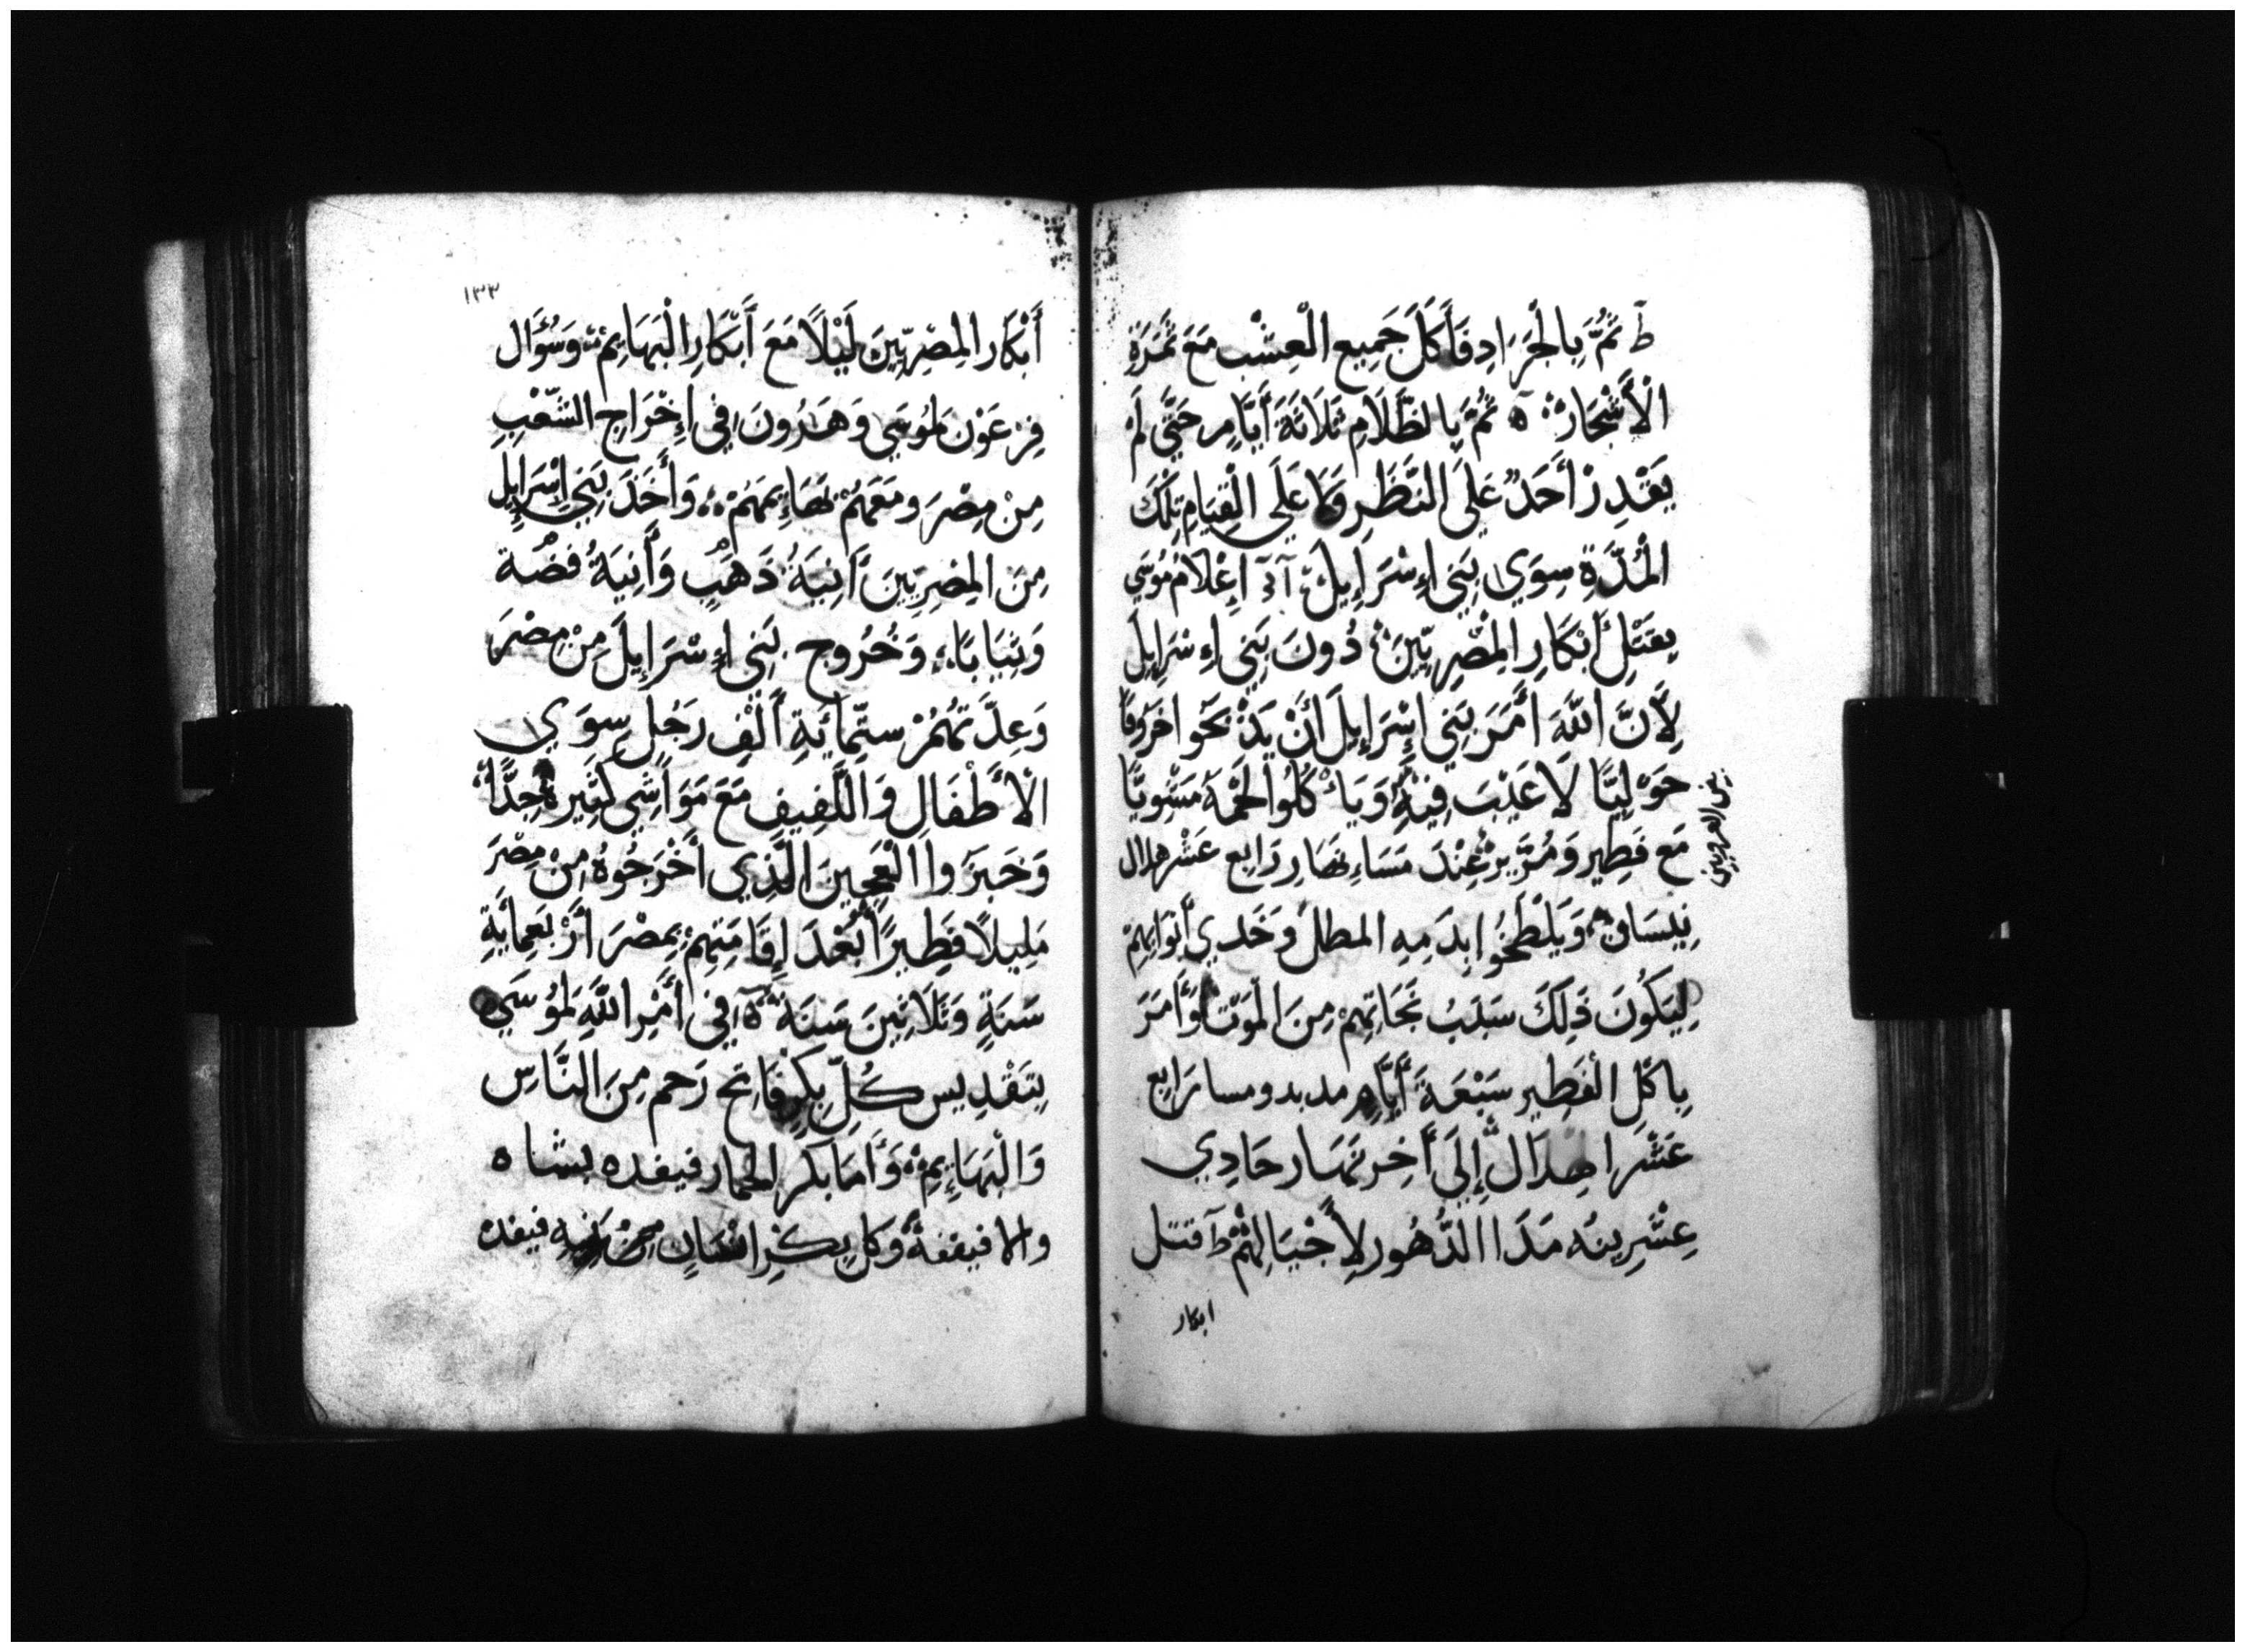 ط ثُمَّ بِالْجَرَادِ فَأَكَلَ جَمِيع الْعِشْب مَعَ ثَمَرَةِ
الْأَشْجَار ه ثُمَّ بِالظَّلَامِ ثَلَاثَةَ أَيَّامٍ حَتَّي لَمْ
يَقْدِرْ أَحَدٌ عَلَي النَّظَرِ وَلَا عَلَي الْقِيَامِ تِلْكَ
الْمُدَّةِ سِوَي بَنِي إِسْرَإِيلَ إِعْلَامُ مُوسَي
بِقَتْلِ أَبْكَارِ الْمِصْرِيِّينَ دُونَ بَنِي إِسْرَإِيلَ
لِأَنَّ اللَّهَ أَمَرَ بَنِي إِسْرَإِيلَ أَنْ يَذْبَحُوا خَرُوفًا
حَوْلِيًّا لَا عَيْبَ فِيْهِ وَيَأْكُلُوا لَحْمَهُ مَشْوِيًّا
مَع فَطِير وَمُرَّيْرِ عِنْدَ مَسَاءِ نَهَارِ رَابِع عَشْر هلال
نِيسَان وَيَلْطَخُوا بِدَمِهِ المطل وَخَدي أَبْوَابِهِمْ
لِيَكُونَ ذَلِكَ سَبَبُ نَجَاتِهِمْ مِنَ الْمَوْت وَأَمَرَ
بِاكْلِ الْفَطِير سَبْعَةَ أَيَّامٍ رَابِع
عَشْرَ هِلَال إِلَي أَخِر نَهَار حَادِي
عِشْرِينه مَدَا الدُّهُور لِأَجْيَالِهِمْ ط قتل
ابكار
بين الغروبين
١٣٣
أَبْكَار الْمِصْرِيِّينَ لَيْلًا مَعَ أَبْكَارِ الْبَهَايِمْ وَسُؤَال
فِرْعَوْن لمُوسَي وَهَرُونَ فِي إِخْرَاجِ الشَّعْبِ
مِنْ مِصْرَ وَمَعَهُمْ بَهَايِمَهُمْ وَأَخَذَ بَنِي إِسْرَإِيل
مِنَ الْمِصْرِيِّينَ أَنِيَةُ ذَهَبٍ وَأَنِيَةُ فضّة
وَثِيَابًا وَخُرُوج بَنِي إِسْرَإِيلَ مِنْ مِصْرَ
وَعِدَّتُهُمْ ستّمِايَةِ أَلْفِ رَجُلٍ سِوَي
الْأَطْفَالِ وَاللَّفِيفِ مَعَ مَوَاشِي كَثِيرة جِدًّا
وَخَبَزُوا الْعَجِينَ الَّذِي أَخْرَجُوهُ مِنْ مِصْرَ
مَلِيلًا فَطِيرًا بَعْدَ إِقَامَتِهِمْ بِمِصْرَ أَرْبَعمِايَةِ
سَنَةٍ وَثَلَاثِينَ سَنَة فِي أَمْرِ اللَّهِ لمُوسَي
بِتَقْدِيس كُلِّ بِكْرٍ فَاتِح رَحم مِنَ النَّاسِ
وَالْبَهَايِمِ وَأَمَا بكر الحمار فيفده بشاه
والا فيقفه وَكُل بِكْرِ انْسَانٍ مِنْ فيفده